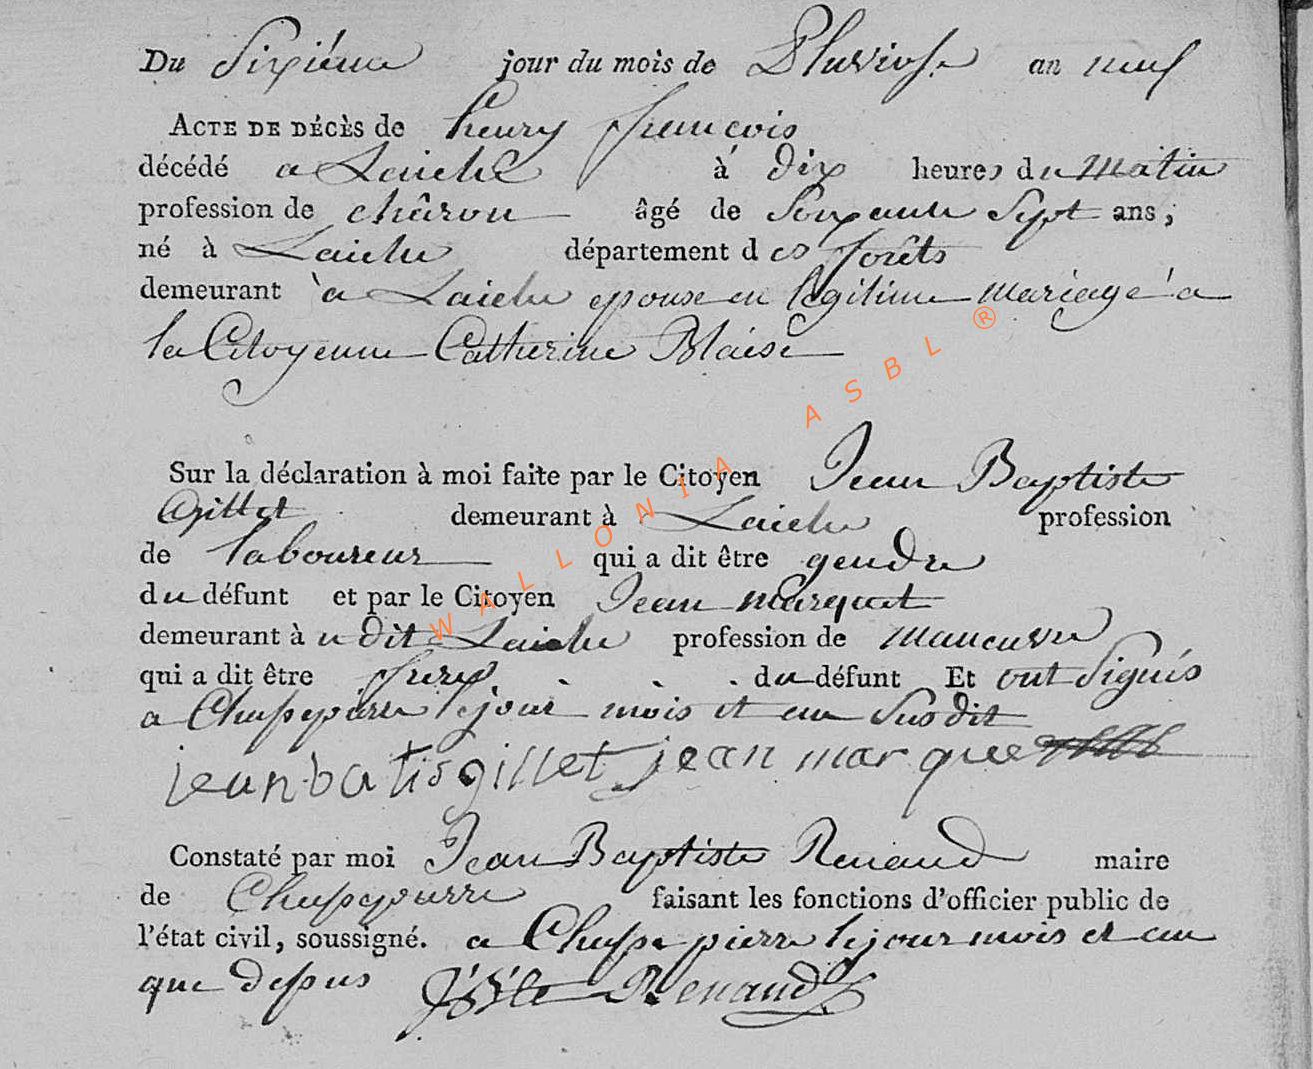 Du Sixiéme jour du mois de Pluviose an neuf
ACTE DE DÉCÈS de henry françois
décédé a Laiche à dix heures du matin
profession de châron âgé de Soixante Sept ans ;
né à Laiche département des forêts
demeurant à Laiche epouse en légitime mariage à
la Citoyenne Catherine Blaise
Sur la déclaration à moi faite par le Citoyen Jean Baptiste
Gillet demeurant à Laiche profession
de laboureur qui a dit être gendre
du défunt et par le Citoyen Jean marquet
demeurant à u dit Laiche profession de maneuvre
qui a dit être frere du défunt Et ont Signés
a Chassepierre le jour mois et an Susdit
jean batis gillet jean marquee
Constaté par moi Jean Baptiste Renaud maire
de Chassepierre faisant les fonctions d'officier public de
l'état civil, soussigné. a Chassepierre le jour mois et an
que dessus J: B: te Renaud
WALLONIA ASBL ®